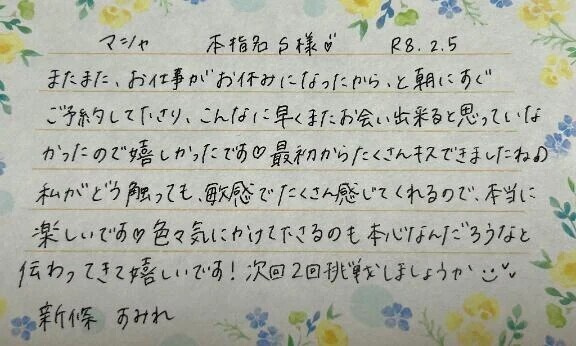 マシャ 本指名S様♡ R8.2.5
またまた、お仕事がお休みになったから、と朝にすぐ
ご予約して下さり、こんなに早くまたお会い出来ると思っていな
かったので嬉しかったです♡最初からたくさんキスできましたね♪
私がどう触っても、敏感でたくさん感じてくれるので、本当に
楽しいです♡色々気にかけて下さるのも本心なんだろうなと
伝わってきて嬉しいです!次回2回挑戦しましょうか
新條 すみれ